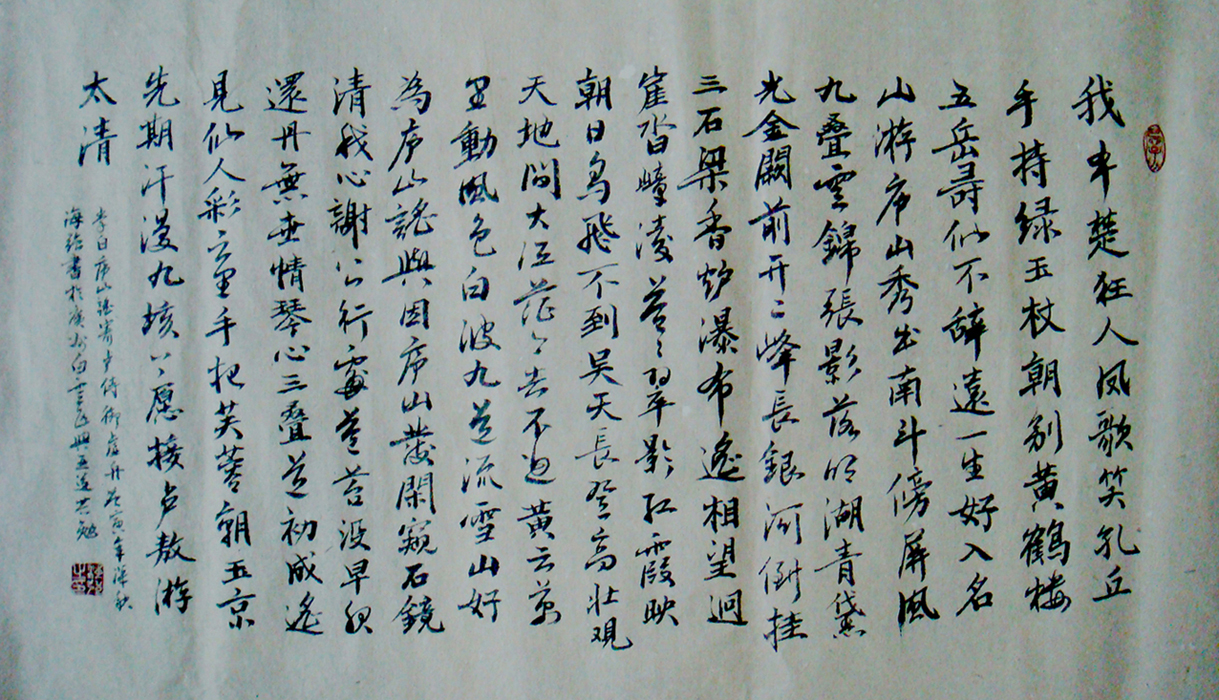 我本楚狂人凤歌笑孔丘
手持绿玉杖朝别黄鹤楼
五岳尋仙不辞遠一生好入名
山游庐山秀出南斗傍屏風
九叠雲錦張影落明湖青黛
光金闕前开二峰長銀河倒挂
三石梁香炉瀑布遥相望迥
崖沓嶂凌苍苍翠影红霞映
朝日鸟飛不到吴天長登高壮观
天地間大江茫茫去不迴黄云万
里動風色白波九道流雪山好
為庐山謠興因庐山發閑窺石鏡
清我心謝公行處蒼苔没早服
還丹無世情琴心三叠道初成遙
見仙人彩云里手把芙蓉朝玉京
先期汗漫九垓上愿接卢敖游
太清
李白庐山謠寄卢侍御虚舟 寅年深秋
書於 白雲 興 共勉